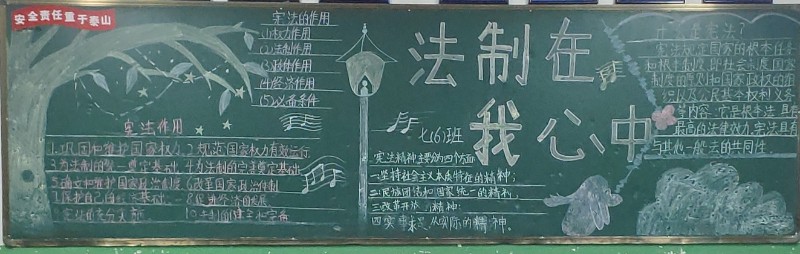 安全责任重于泰山
宪法的作用
(1)权力作用
(2)法制作用
(3)政体作用
(4)经济作用
(5)必需条件
宪法作用
1.巩固和维护国家权力 2.规范国家权力有效运行
3.为法制的统一奠定基础 4.为法制的完善奠定基础
5.确立和维护国家政治制度 6.改革国家政治体制
法制在
我心中
七(6)班
宪法精神主要为四个方面
一.坚持社会主义本质特征的精神;
二.民族团结和国家统一的精神;
三.改革开放 精神;
四.实事求是从实际的精神。
什么是宪法?
宪法规定国家的根本任务
和根本制度,即社会
制度的原则和国家政权的组
织以及公民基本权利义务
等内容,它是根本法,具有
最高的法律效力,宪法具有
与其他一般 去的共同性